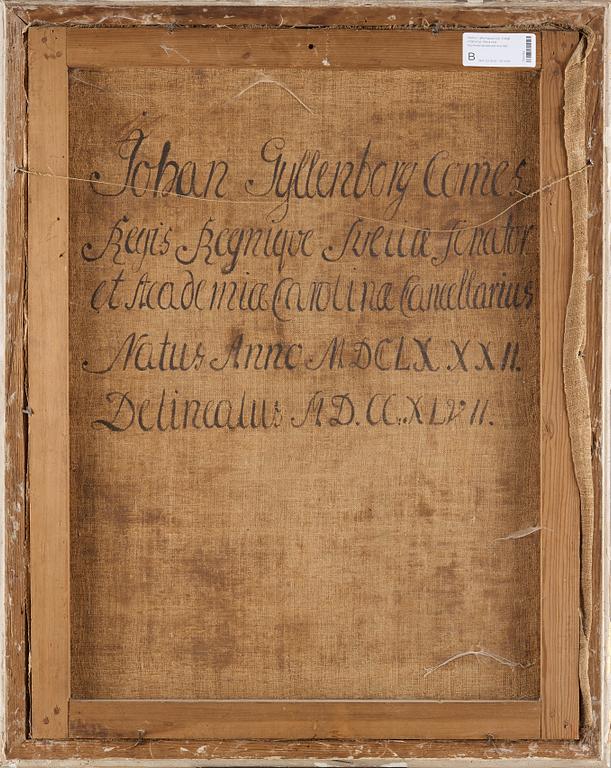 Johan Gyllenborg Comes
Regis Regnique Sveciæ Senator
et Academiæ Carolinæ Cancellarius
Natus Anno MDCLXXXII.
Delineatus MD.CC.XLVII.
B